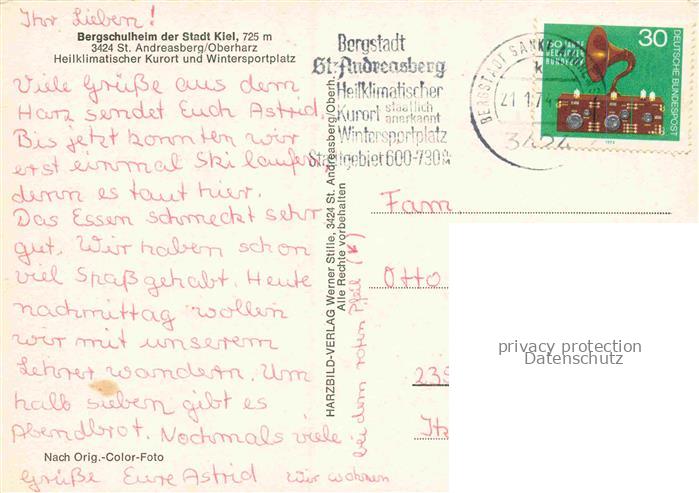 Ihr Lieben!
Bergschulheim der Stadt Kiel, 725 m
3424 St. Andreasberg/Oberharz
Heilklimatischer Kurort und Wintersportplatz
Viele Grüße aus dem
Harz sendet Euch Astrid.
Bis jetzt konnten wir
erst einmal Ski laufen
denn es taut hier.
Das Essen schmeckt sehr
gut. Wir haben schon
viel Spaß gehabt. Heute
nachmittag wollen
wir mit unserem
Lehrer wandern. Um
halb sieben gibt es
Abendbrot. Nochmals viele
Nach Orig.-Color-Foto
Grüße Eure Astrid
Wir wohnen
bei dem roten Pfeil (*)
HARZBILD-VERLAG Werner Stille, 3424 St. Andreasberg/Oberh.
Alle Rechte vorbehalten
Bergstadt
St. Andreasberg
Heilklimatischer
Kurort staatlich
anerkannt
Wintersportplatz
Stadtgebiet 600-730
BERGSTADT SANKT
21.1.74
3424
30
DEUTSCHE BUNDESPOST
50 JAHRE
1973
Fam.
Otto
235
Itz
privacy protection
Datenschutz